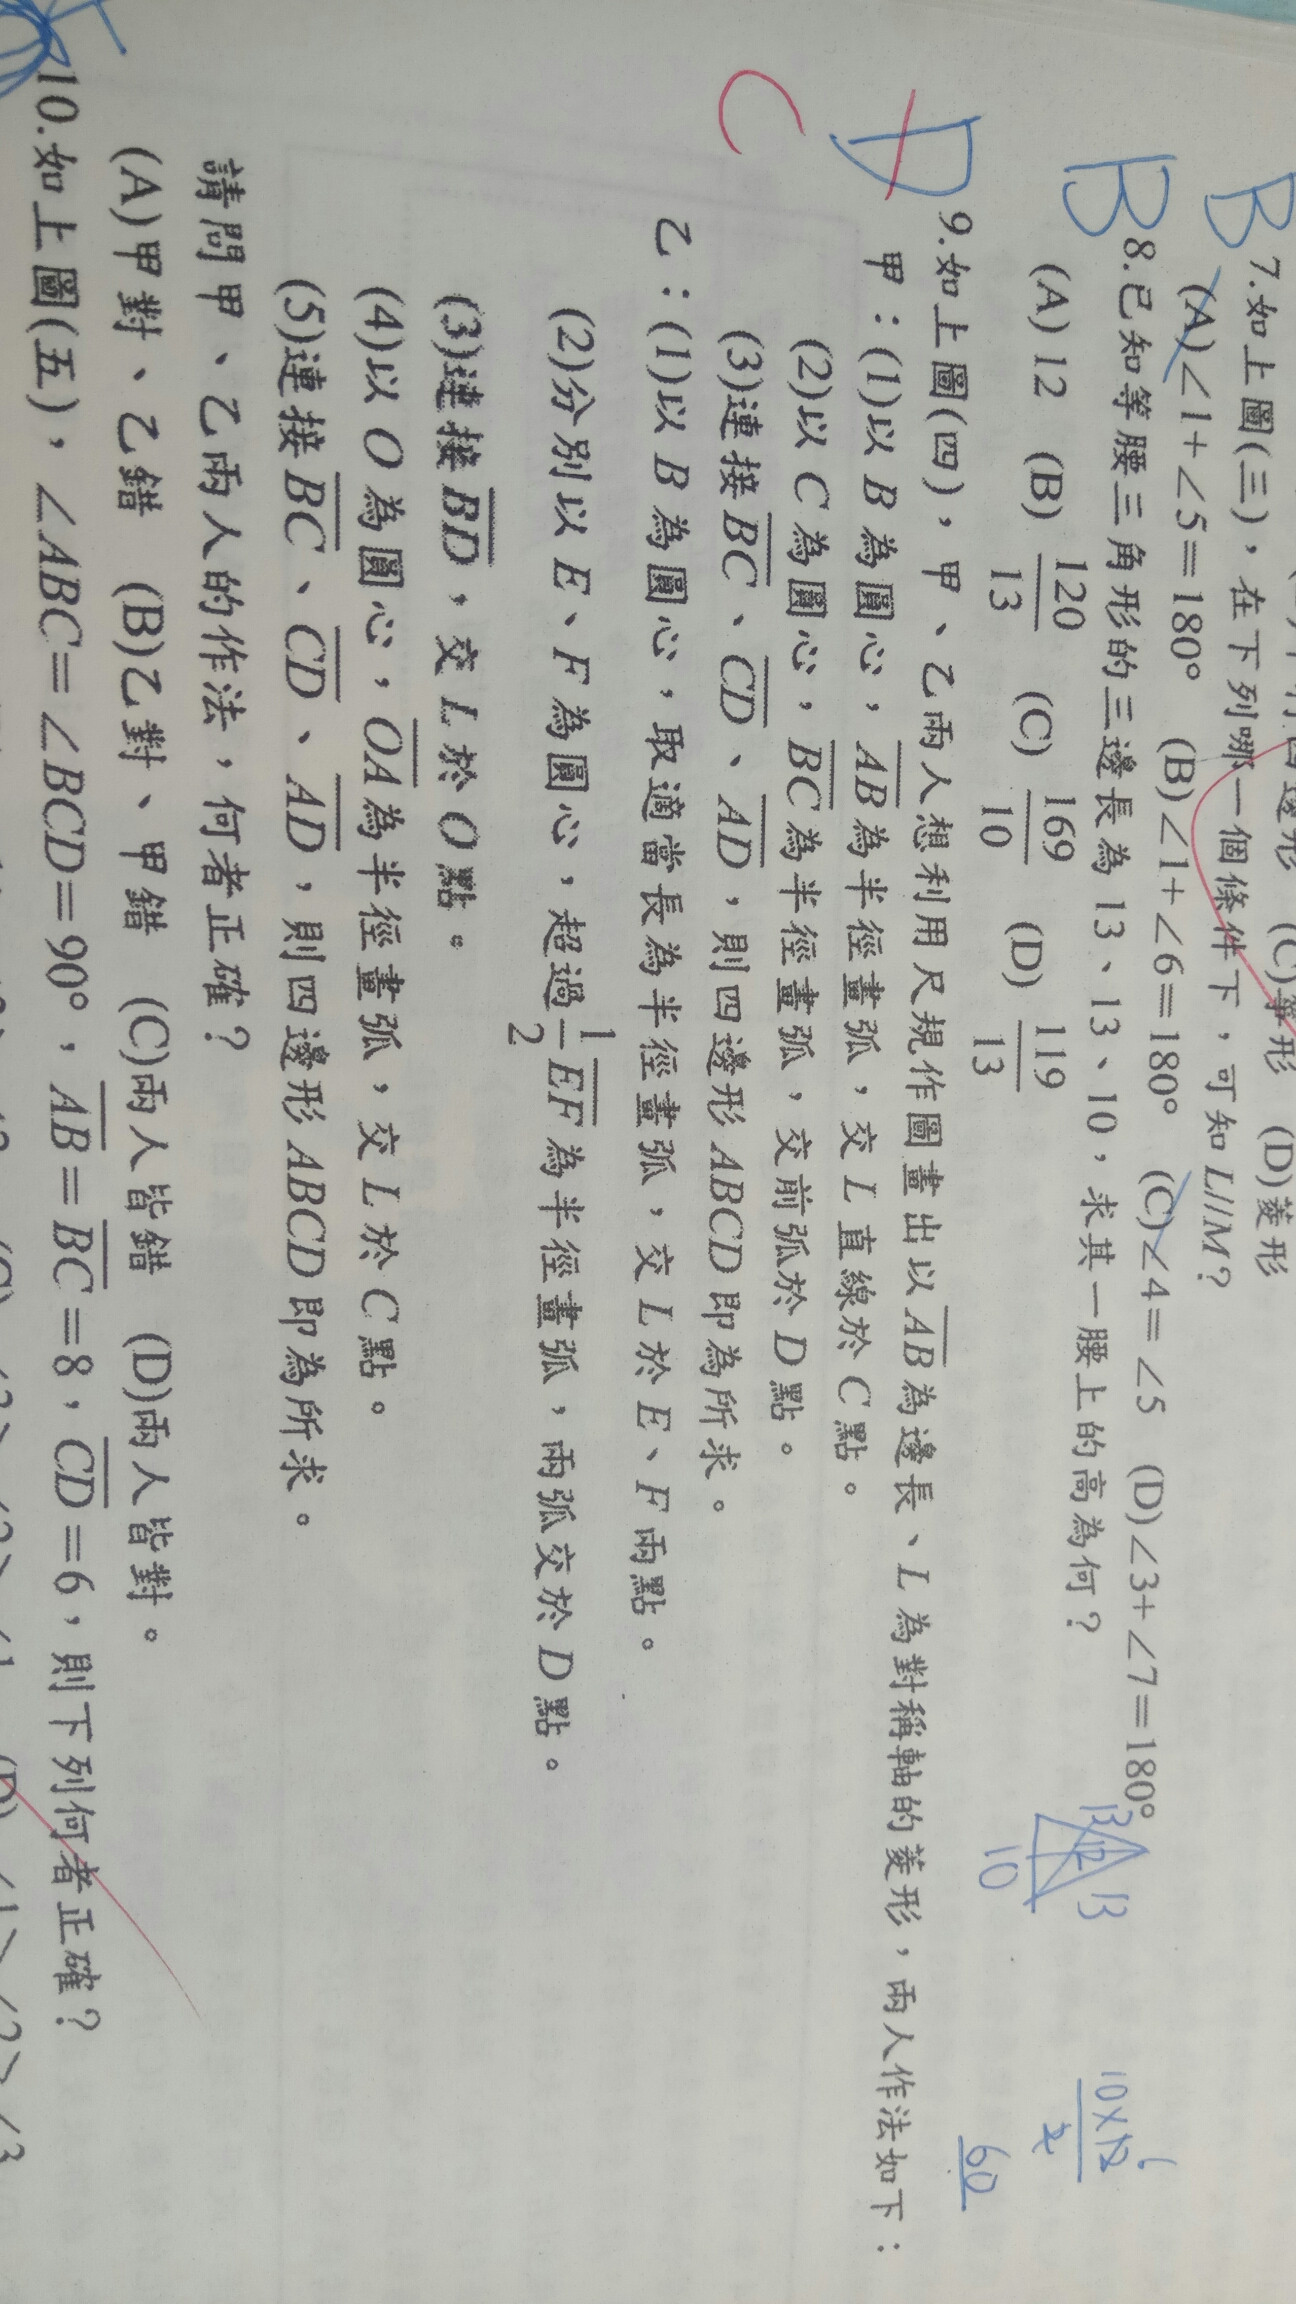 (C)箏形 (D)菱形
B 7.如上圖(三),在下列哪一個條件下,可知L//M?
(A)∠1+∠5=180° (B)∠1+∠6=180° (C)∠4=∠5 (D)∠3+∠7=180°
B 8.已知等腰三角形的三邊長為 13、13、10,求其一腰上的高為何?
(A) 12 (B) 120/13 (C) 169/10 (D) 119/13
13 12 13
10
10×12 6
2
60
D 9.如上圖(四),甲、乙兩人想利用尺規作圖畫出以AB為邊長、L為對稱軸的菱形,兩人作法如下:
C
甲:(1)以B為圓心,AB為半徑畫弧,交L直線於C點。
(2)以C為圓心,BC為半徑畫弧,交前弧於D點。
(3)連接BC、CD、AD,則四邊形ABCD即為所求。
乙:(1)以B為圓心,取適當長為半徑畫弧,交L於E、F兩點。
(2)分別以E、F為圓心,超過1/2EF為半徑畫弧,兩弧交於D點。
(3)連接BD,交L於O點。
(4)以O為圓心,OA為半徑畫弧,交L於C點。
(5)連接BC、CD、AD,則四邊形ABCD即為所求。
請問甲、乙兩人的作法,何者正確?
(A)甲對、乙錯 (B)乙對、甲錯 (C)兩人皆錯 (D)兩人皆對。
10.如上圖(五),∠ABC=∠BCD=90°,AB=BC=8,CD=6,則下列何者正確?